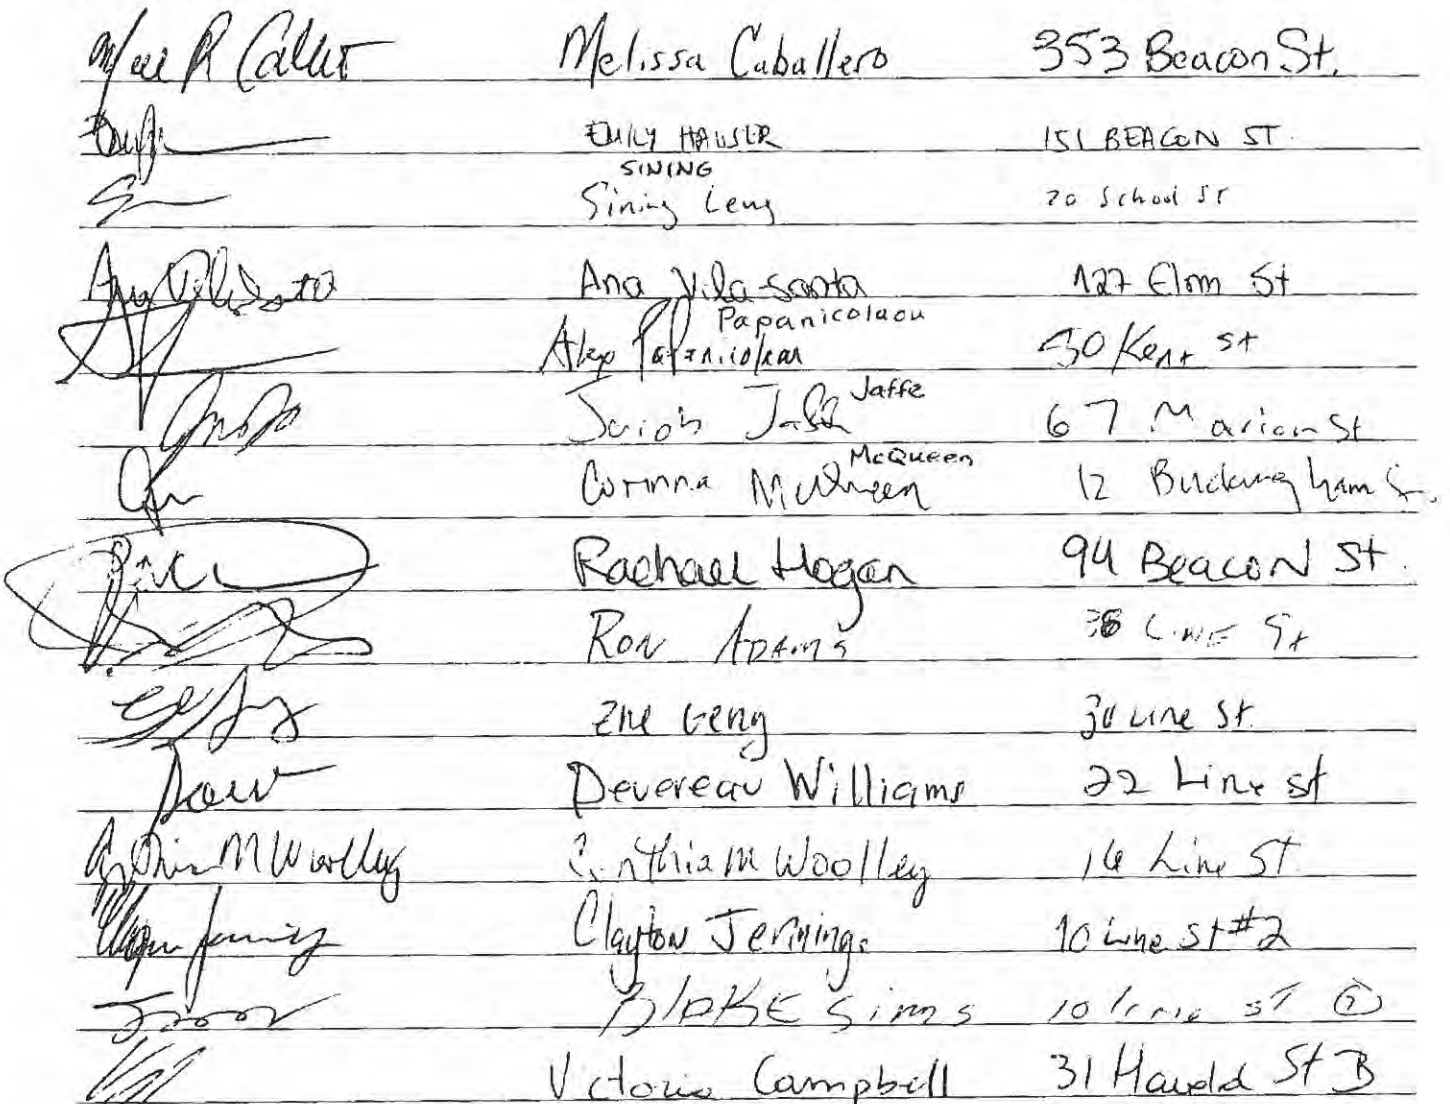 Melissa Caballero 353 Beacon St.
EMILY HAUSER 151 BEACON ST.
SINING
Sining Leng 20 School St
Ana Vila-Santa 127 Elm St
Papanicolaou
Alex Papanicolaou 50 Kent St
Jaffe
Jacob Jaffe 67 Marion St
McQueen
Corinna McQueen 12 Buckingham St.
Rachael Hogan 94 Beacon St.
RON ADAMS 38 LINE St
Geng 30 Line St.
Devereau Williams 22 Line St
Cynthia M Woolley Cynthia M Woolley 16 Line St
Clayton Jennings 10 Line St #2
BLAKE Sims 10 line ST 2
Victoria Campbell 31 Harold St B